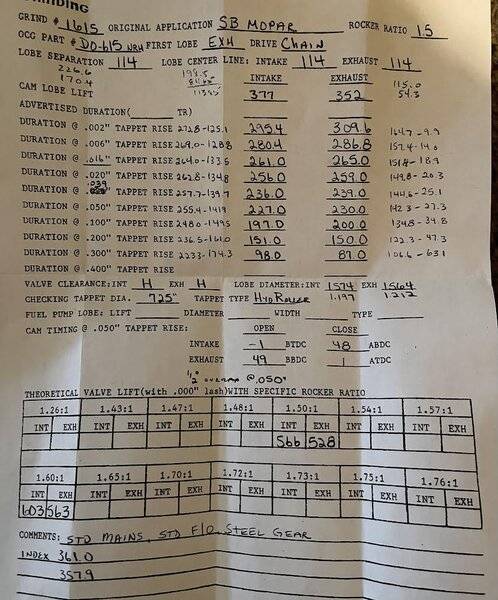 GRINDING
GRIND # 1615 ORIGINAL APPLICATION SB MOPAR ROCKER RATIO 1.5
OCG PART # DO-615 HRH FIRST LOBE EXH DRIVE CHAIN
LOBE SEPARATION 114 LOBE CENTER LINE: INTAKE 114 EXHAUST 114
226.6 198.5 INTAKE EXHAUST 115.0
170.4 54.3
CAM LOBE LIFT 377 352
ADVERTISED DURATION( TR)
DURATION @ .002" TAPPET RISE 272.8-125.1 295.4 309.6 164.7-9.9
DURATION @ .006" TAPPET RISE 269.0-128.8 280.4 286.8 157.4-14.0
DURATION @ .016" TAPPET RISE 264.0-133.5 261.0 265.0 151.8-18.9
DURATION @ .020" TAPPET RISE 262.8-134.8 256.0 259.0 149.8-20.3
.039
DURATION @ TAPPET RISE 257.7-139.7 236.0 239.0 144.6-25.1
DURATION @ .050" TAPPET RISE 255.4-141.9 227.0 230.0 142.3-27.3
DURATION @ .100" TAPPET RISE 248.0-149.5 197.0 200.0 134.8-34.8
DURATION @ .200" TAPPET RISE 236.5-161.0 151.0 150.0 122.3-47.3
DURATION @ .300" TAPPET RISE 223.3-174.3 98.0 87.0 106.6-63.1
DURATION @ .400" TAPPET RISE
VALVE CLEARANCE: INT H EXH H LOBE DIAMETER: INT 1574 EXH 1564
CHECKING TAPPET DIA. .725" TAPPET TYPE HYD ROLLER 1.197 1.212
FUEL PUMP LOBE: LIFT DIAMETER WIDTH TYPE
CAM TIMING @ .050" TAPPET RISE: OPEN CLOSE
INTAKE -1 BTDC 48 ABDC
EXHAUST 49 BBDC 1 ATDC
@ .050"
THEORETICAL VALVE LIFT(with .000" lash)WITH SPECIFIC ROCKER RATIO
1.26:1 1.43:1 1.47:1 1.48:1 1.50:1 1.54:1 1.57:1
INT EXH INT EXH INT EXH INT EXH INT EXH INT EXH INT EXH
566 528
1.60:1 1.65:1 1.70:1 1.72:1 1.73:1 1.75:1 1.76:1
INT EXH INT EXH INT EXH INT EXH INT EXH INT EXH INT EXH
603 563
COMMENTS: STD MAINS, STD F/O STEEL GEAR
INDEX 361.0
357.9